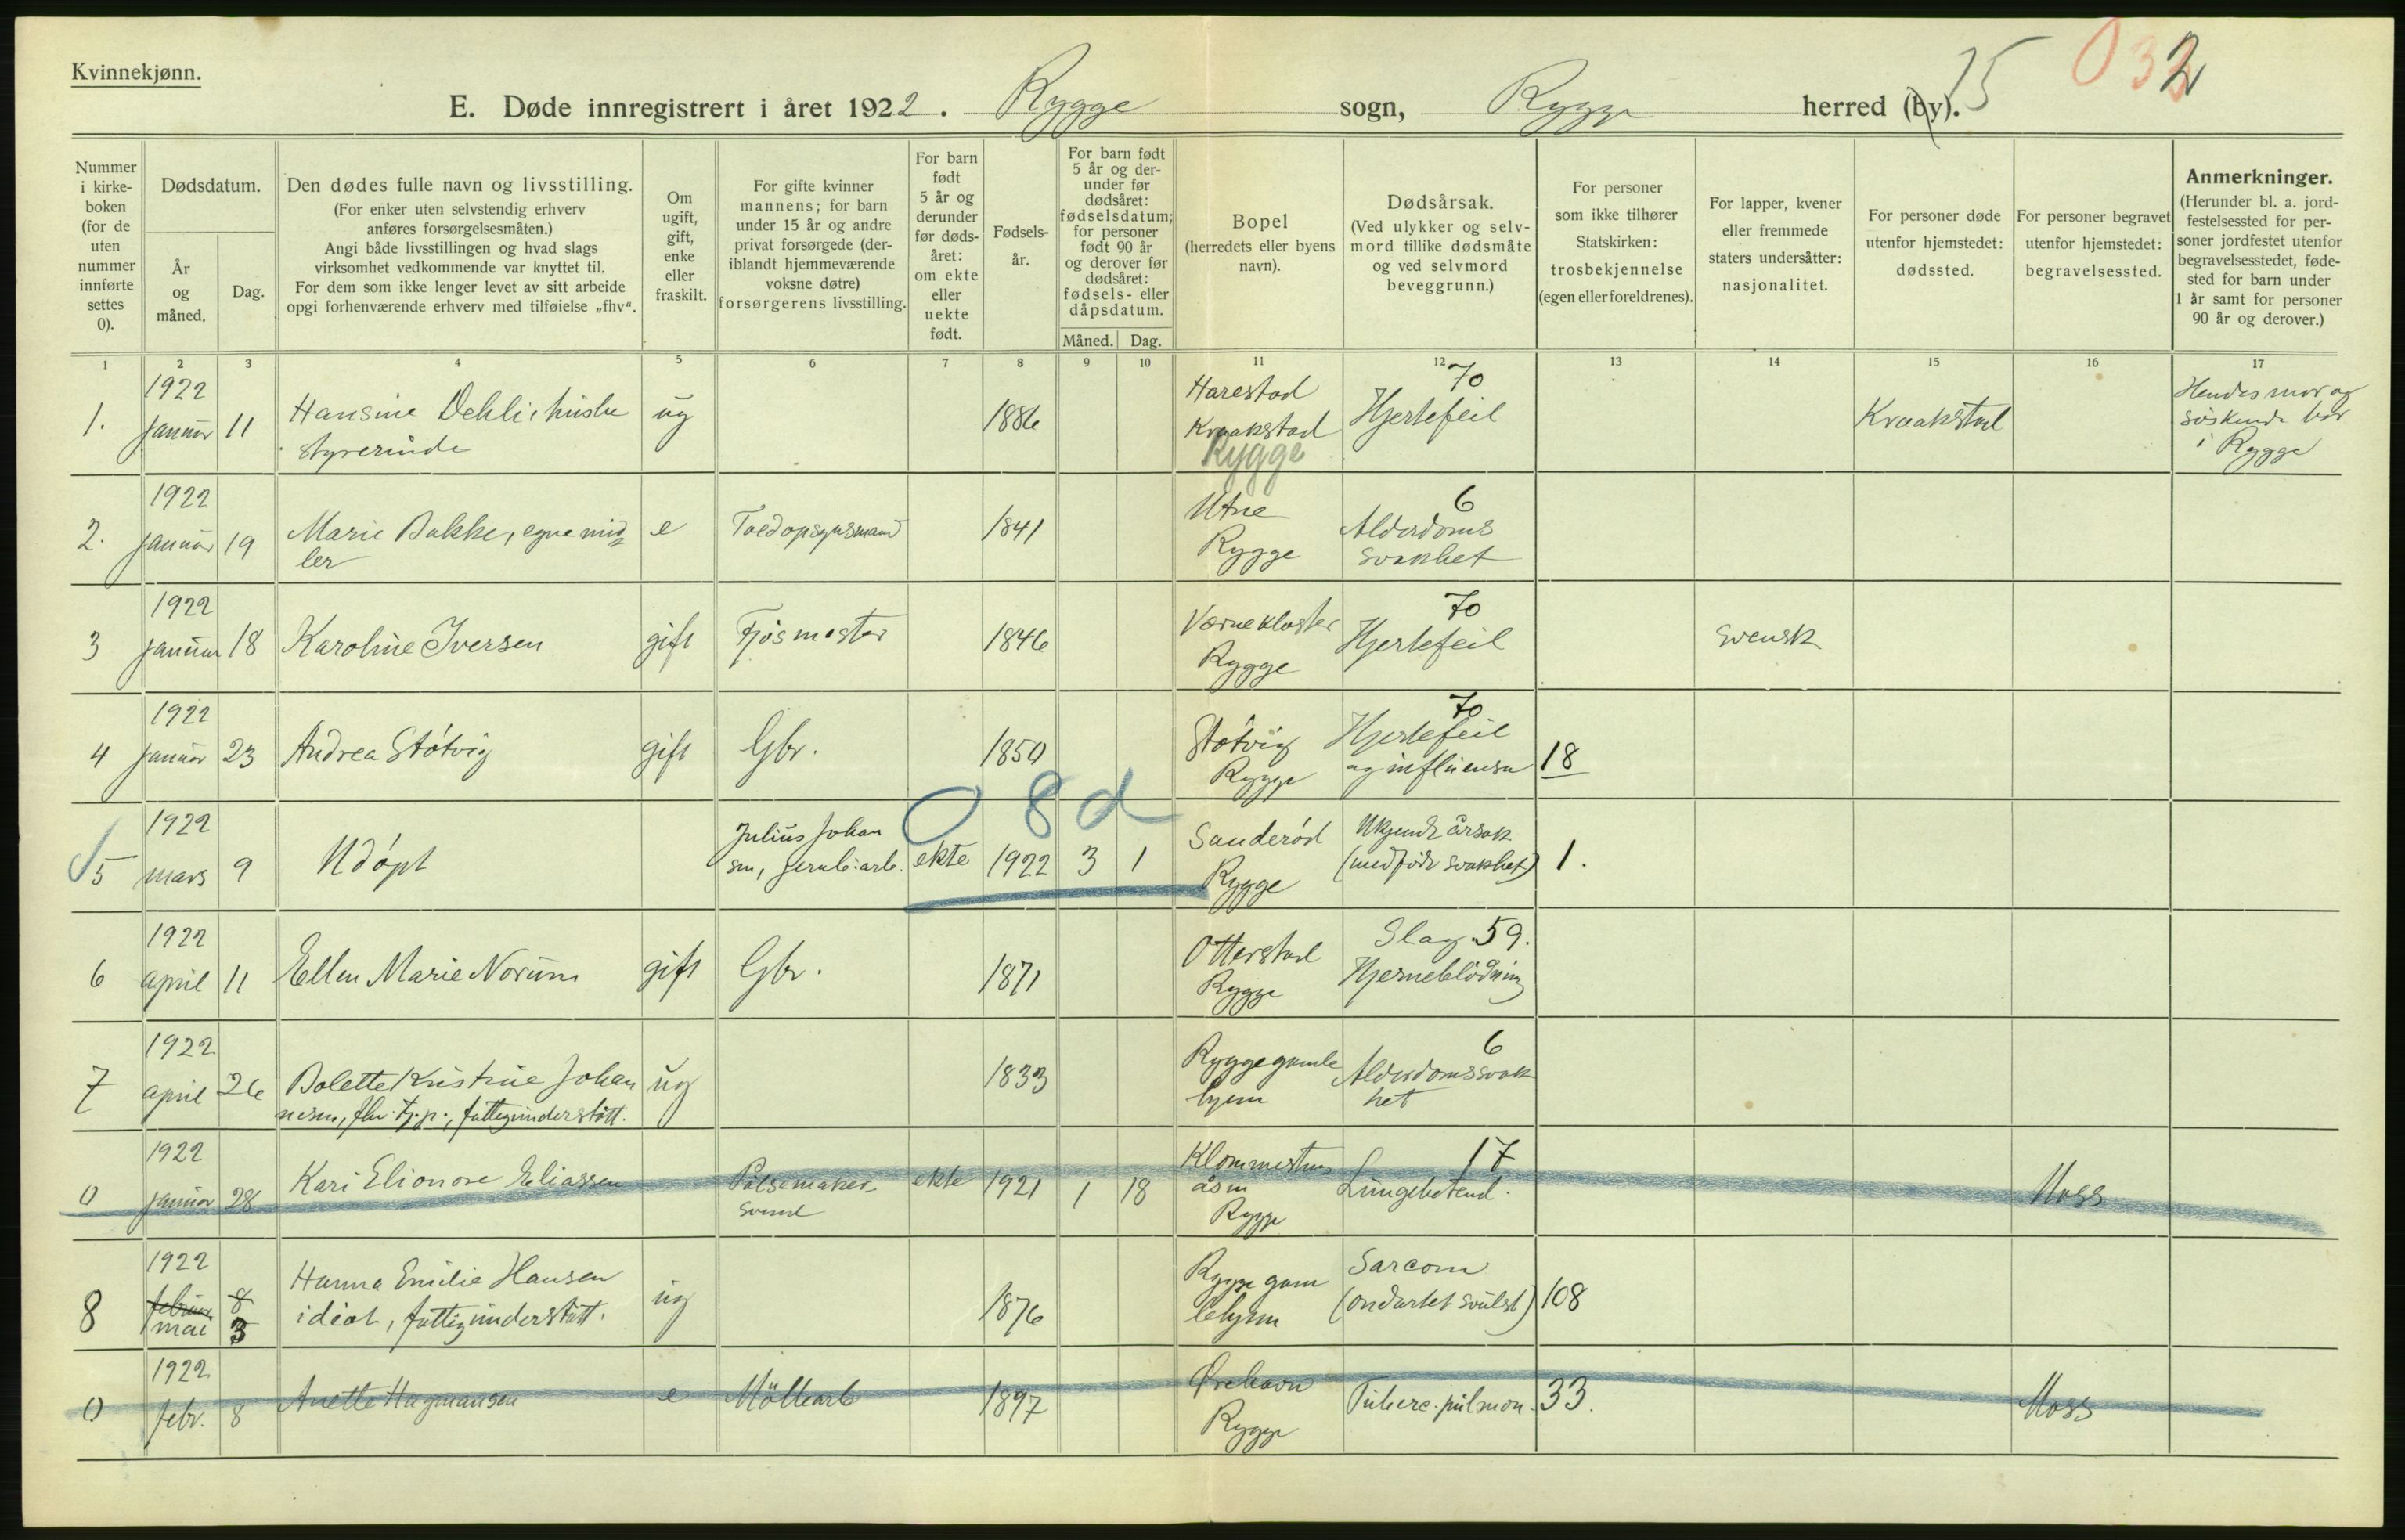 Kvinnekjønn.
15 032
E. Døde innregistrert i året 1922. Rygge sogn, Rygge herred (by).
Nummer i kirke-boken (for de uten nummer innførte settes 0).
Dødsdatum.
År og måned.
Dag.
Den dødes fulle navn og livsstilling.
(For enker uten selvstendig erhverv anføres forsørgelsesmåten.)
Angi både livsstillingen og hvad slags virksomhet vedkommende var knyttet til.
For dem som ikke lenger levet av sitt arbeide opgi forhenværende erhverv med tilføielse „fhv“.
Om ugift, gift, enke eller fraskilt.
For gifte kvinner mannens; for barn under 15 år og andre privat forsørgede (deriblandt hjemmeværende voksne døtre) forsørgerens livsstilling.
For barn født 5 år og derunder før dødsåret: om ekte eller uekte født.
Fødsels-år.
For barn født 5 år og derunder før dødsåret: fødselsdatum; for personer født 90 år og derover før dødsåret: fødsels- eller dåpsdatum.
Måned. Dag.
Bopel (herredets eller byens navn).
Dødsårsak.
(Ved ulykker og selvmord tillike dødsmåte og ved selvmord beveggrunn.)
For personer som ikke tilhører Statskirken: trosbekjennelse (egen eller foreldrenes).
For lapper, kvener eller fremmede staters undersåtter: nasjonalitet.
For personer døde utenfor hjemstedet: dødssted.
For personer begravet utenfor hjemstedet: begravelsessted.
Anmerkninger.
(Herunder bl. a. jordfestelsessted for personer jordfestet utenfor begravelsesstedet, fødested for barn under 1 år samt for personer 90 år og derover.)
1 2 3 4 5 6 7 8 9 10 11 12 13 14 15 16 17
1. 1922 januar 11 Hansine Dehli, husbe styrerinde ug 1886 Harestad Kraakstad Rygge 70 Hjertefeil Kraakstad Hendes mor og søskende bor i Rygge
2. 1922 januar 19 Marie Bakke, egne midler e Toldopsynsmand 1841 Utne Rygge 6 Alderdoms svakhet
3 1922 januar 18 Karoline Iversen gift Fjøsmester 1846 Værnekloster Rygge 70 Hjertefeil svensk
4 1922 januar 23 Andrea Støtvig gift Gbr. 1850 Støtvig Rygge 70 Hjertefeil og influensa 18
0 8 d
5 1922 mars 9 Udøpt Julius Johansen, jernb.arb. ekte 1922 3 1 Sanderød Rygge Ukjendt årsak (medfødt svakhet) 1.
6 1922 april 11 Ellen Marie Norum gift Gbr. 1871 Otterstad Rygge Slag. 59. Hjerneblødning
7 1922 april 26 Bolette Kristine Johannesen, fhv. tj.p., fattigunderstøtt. ug 1833 Rygge gamlehjem 6 Alderdomssvakhet
0 1922 januar 28 Kari Elionore Eliassen Pølsemaker-svend ekte 1921 1 18 åsen Rygge 17 Lungebetend. Moss
8 1922 februar mai 8 3 Hanna Emilie Hansen idiot, fattigunderstøtt. ug 1876 Rygge gamlehjem Sarcom (ondartet svulst) 108
0 1922 febr. 8 Anette Hagmansen e Møllearb 1897 Ørehavn Rygge Tuberc. pulmon. 33. Moss